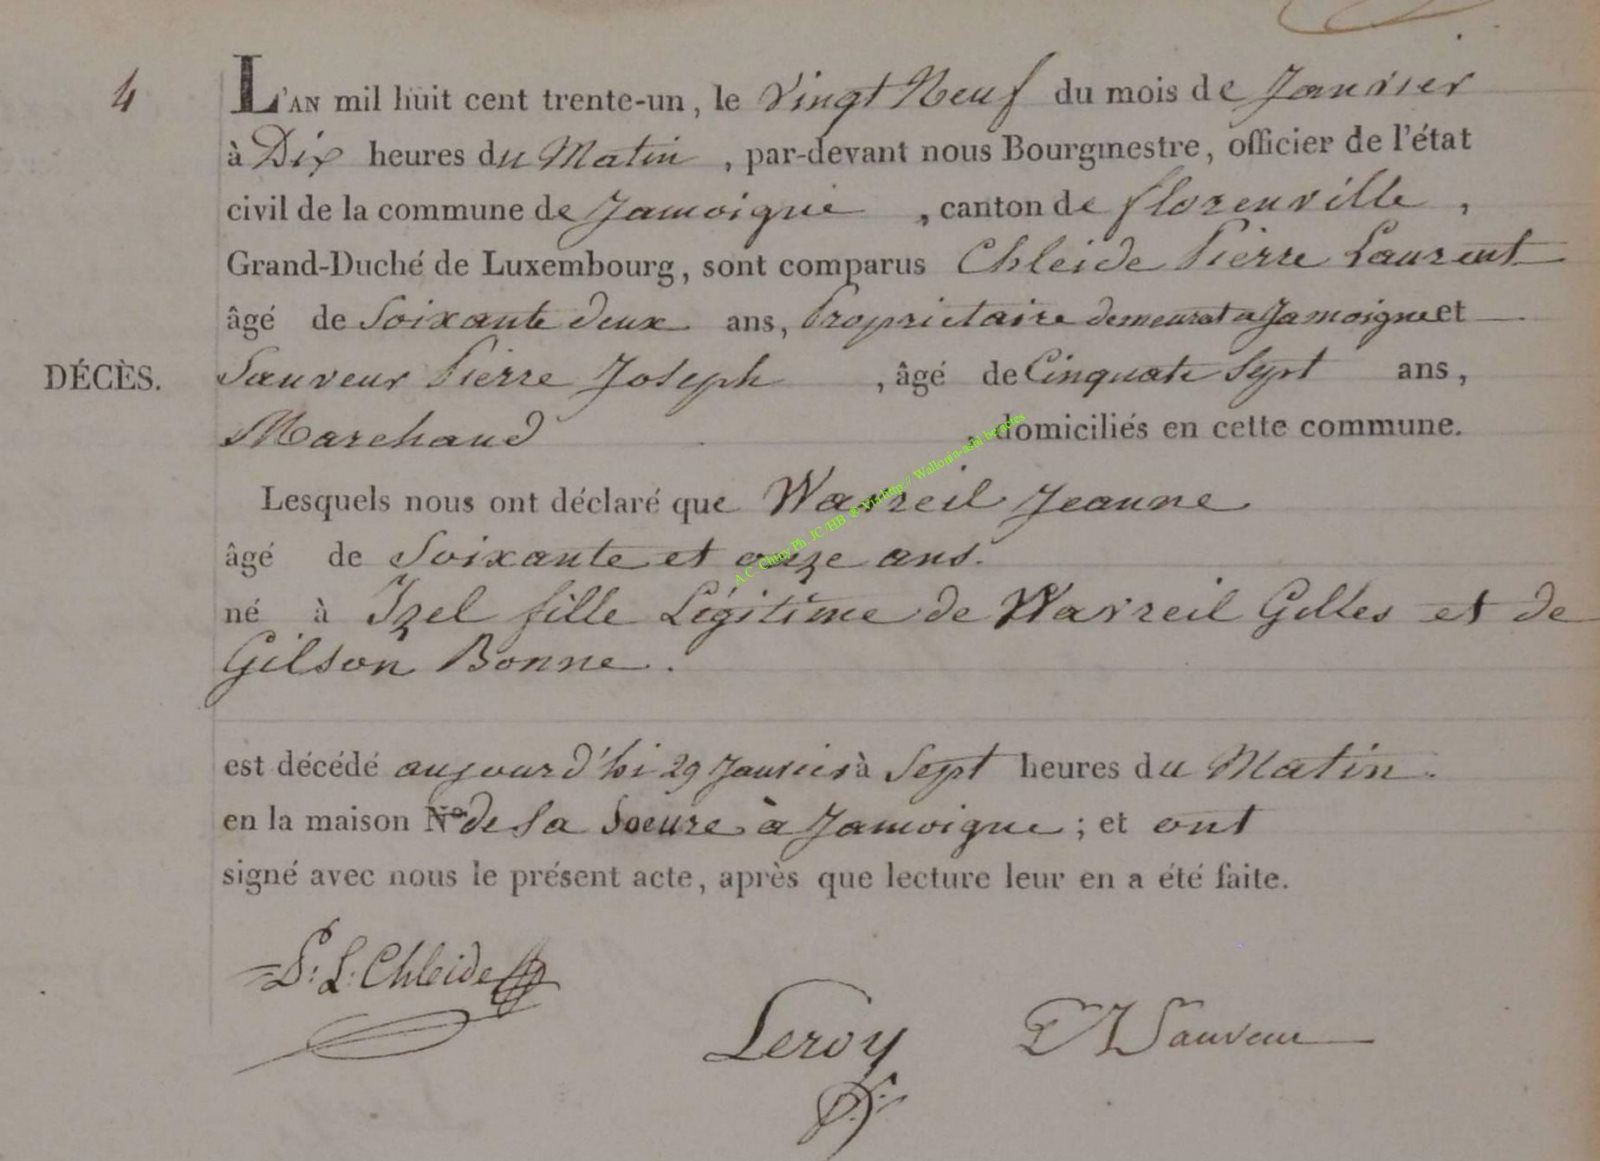 4
L'AN mil huit cent trente-un, le Vingt Neuf du mois de Janvier
à Dix heures du Matin, par-devant nous Bourgmestre, officier de l'état
civil de la commune de Jamoigne, canton de florenville,
Grand-Duché de Luxembourg, sont comparus Chleide Pierre Laurent
âgé de Soixante deux ans, Proprietaire demeurat a Jamoigne et
DÉCÈS.
Sauveur Pierre Joseph, âgé de Cinquate Sept ans,
Marchand, domiciliés en cette commune.
Lesquels nous ont déclaré que Wavreil Jeanne
âgé de Soixante et onze ans.
né à Izel fille Légitime de Wavreil Gilles et de
Gilson Bonne.
est décédé aujourd'hi 29 Janvier à Sept heures du Matin.
en la maison No. de Sa Soeure à Jamoigne; et ont
signé avec nous le présent acte, après que lecture leur en a été faite.
P: L: Chleide
Leroy
PJ Sauveur